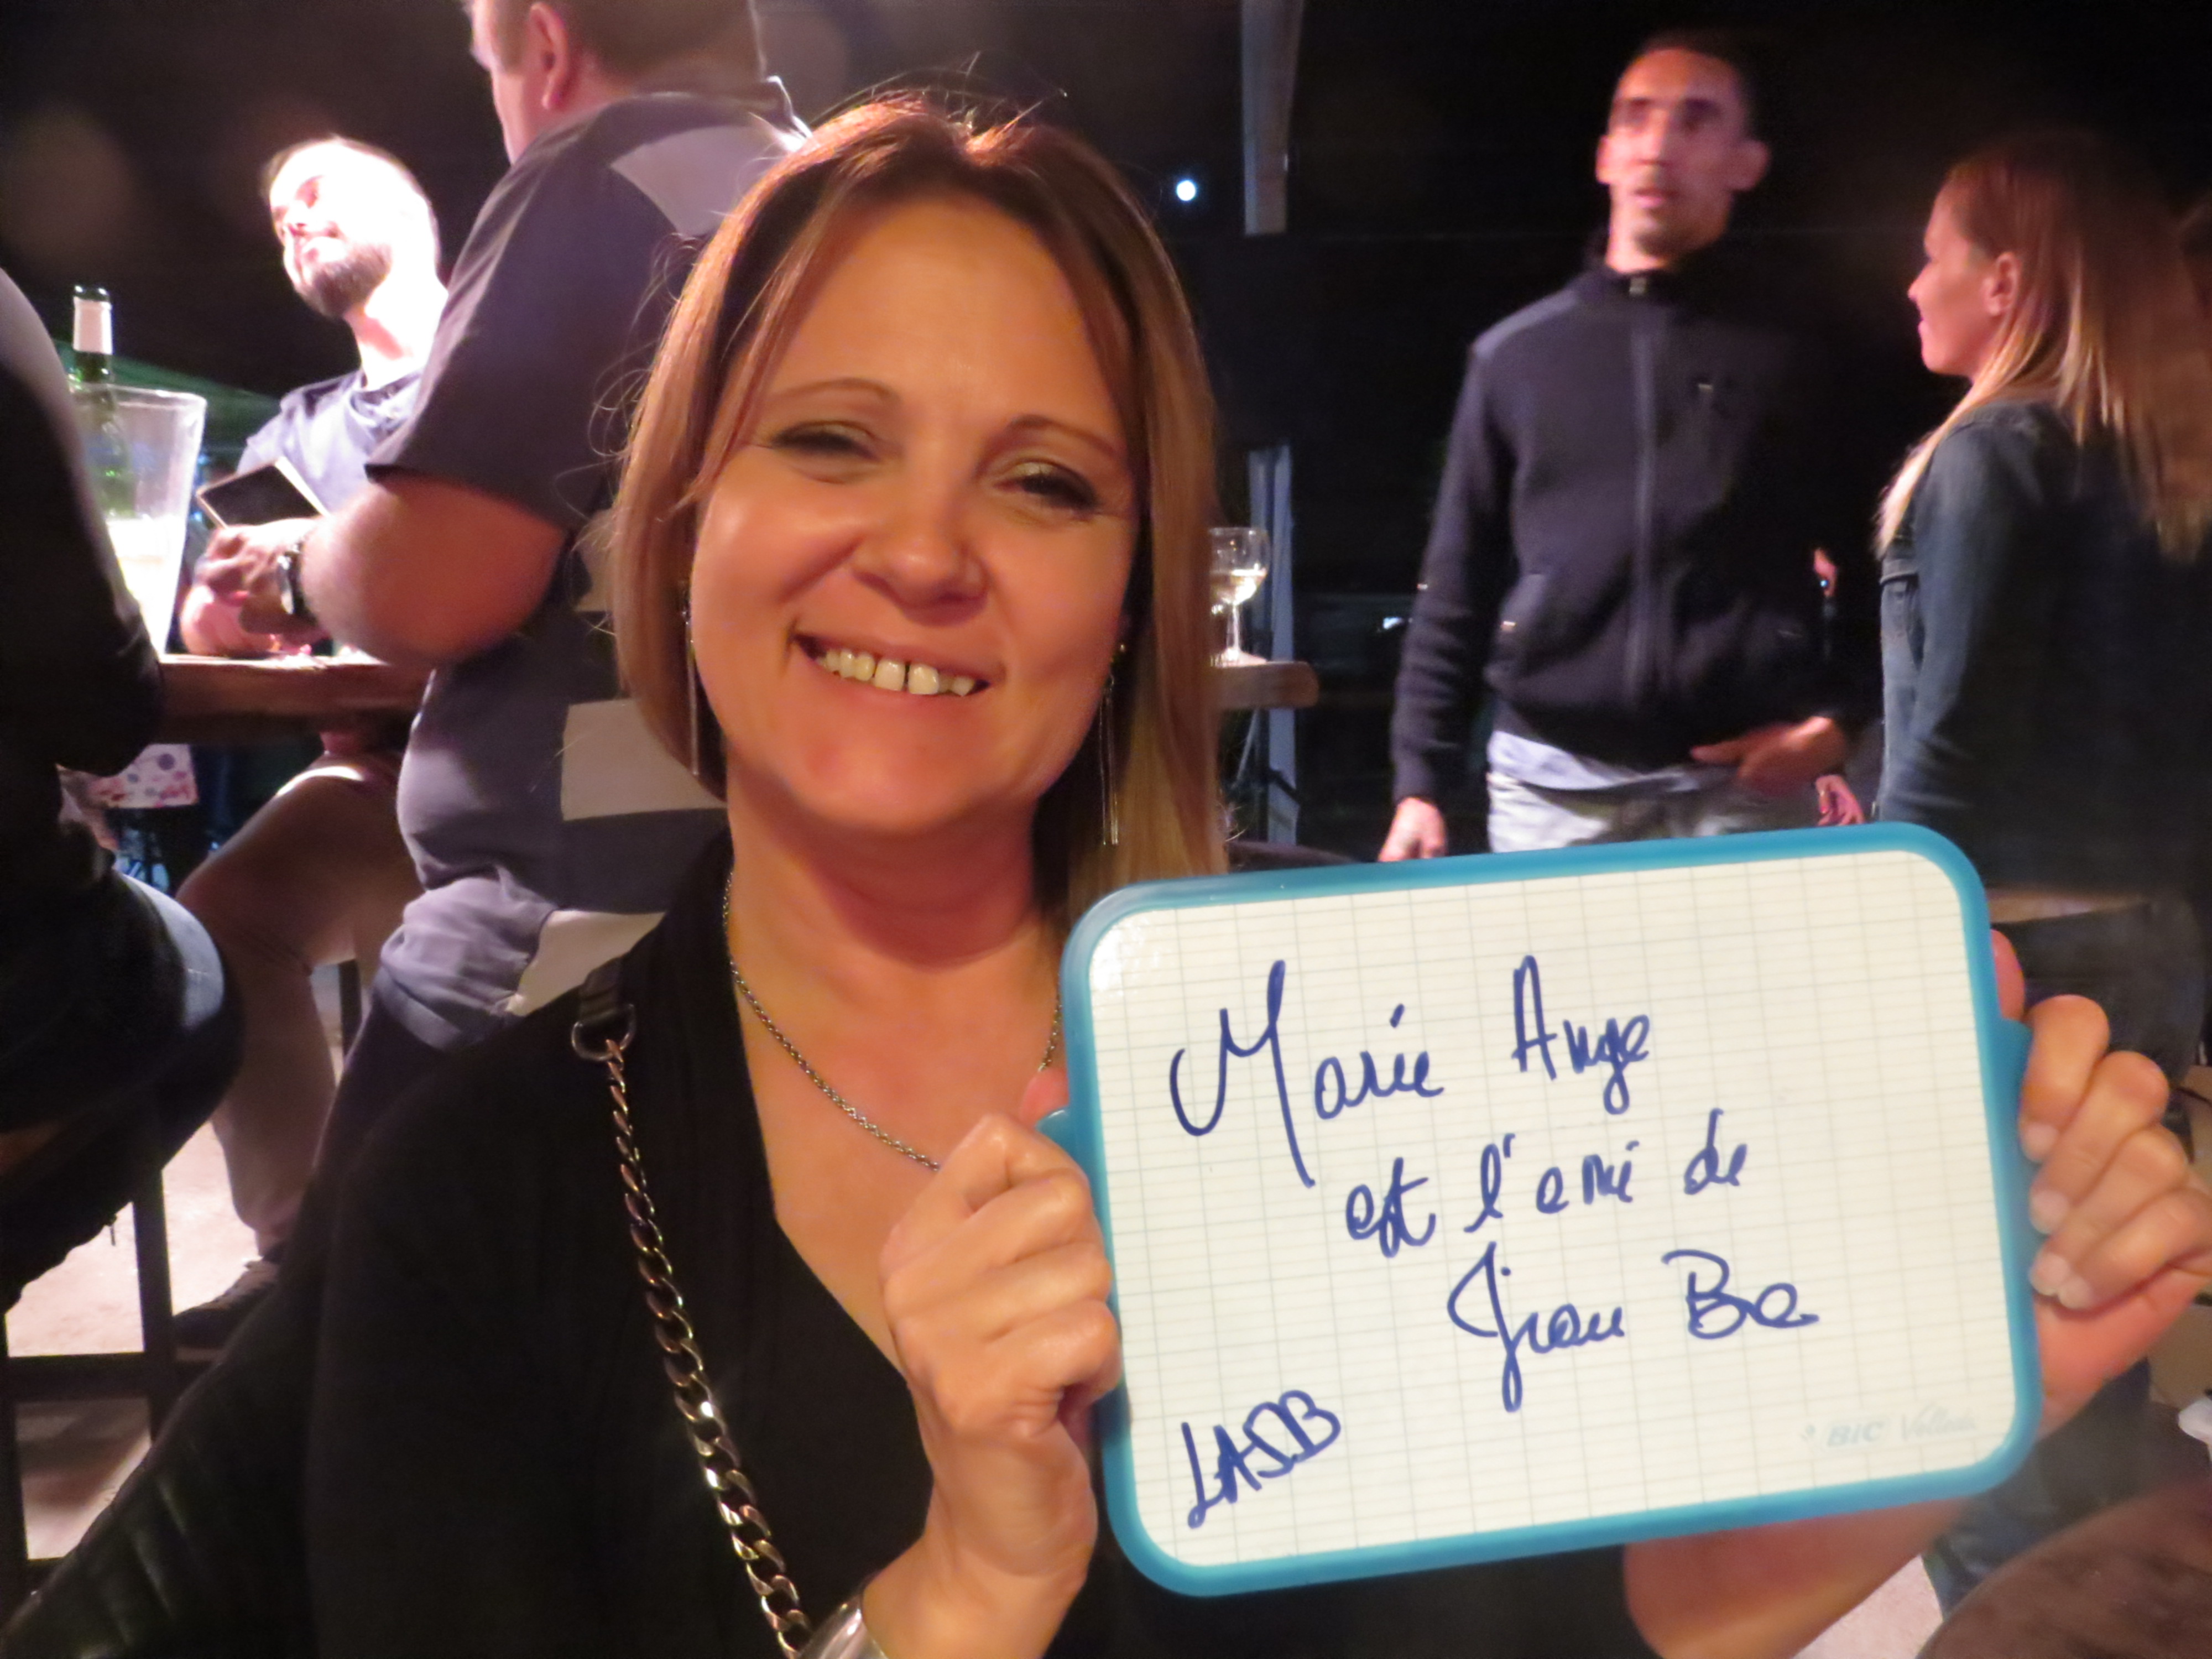 Marie Ange
est l'ami de
Jean Ba
LASB
BIC Velleda